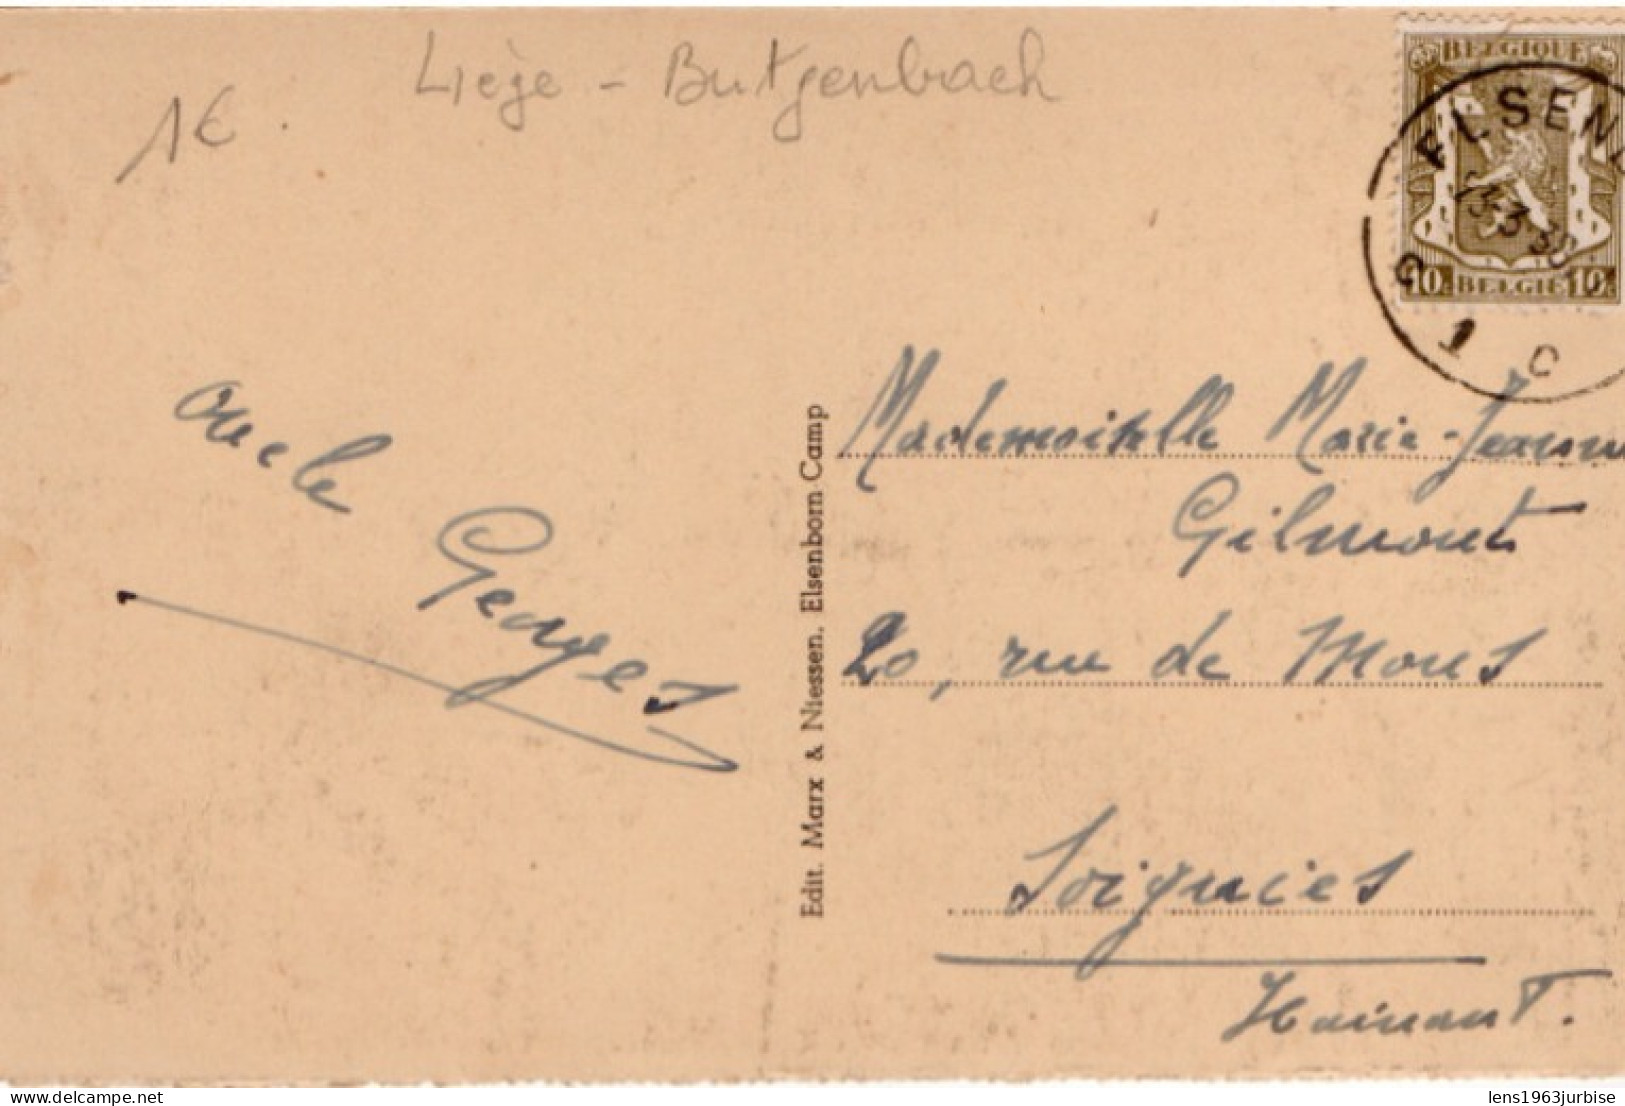 Liège - Butgenbach
1€.
BELGIQUE
ELSENB
10 BELGIE 10
1 C
oncle
Georges
Edit. Marx & Niessen, Elsenborn-Camp
Mademoiselle Marie-Jeann
Gilmont
20, rue de Mons
Soignies
Hainaut.
delcampe.net
lens1963jurbise